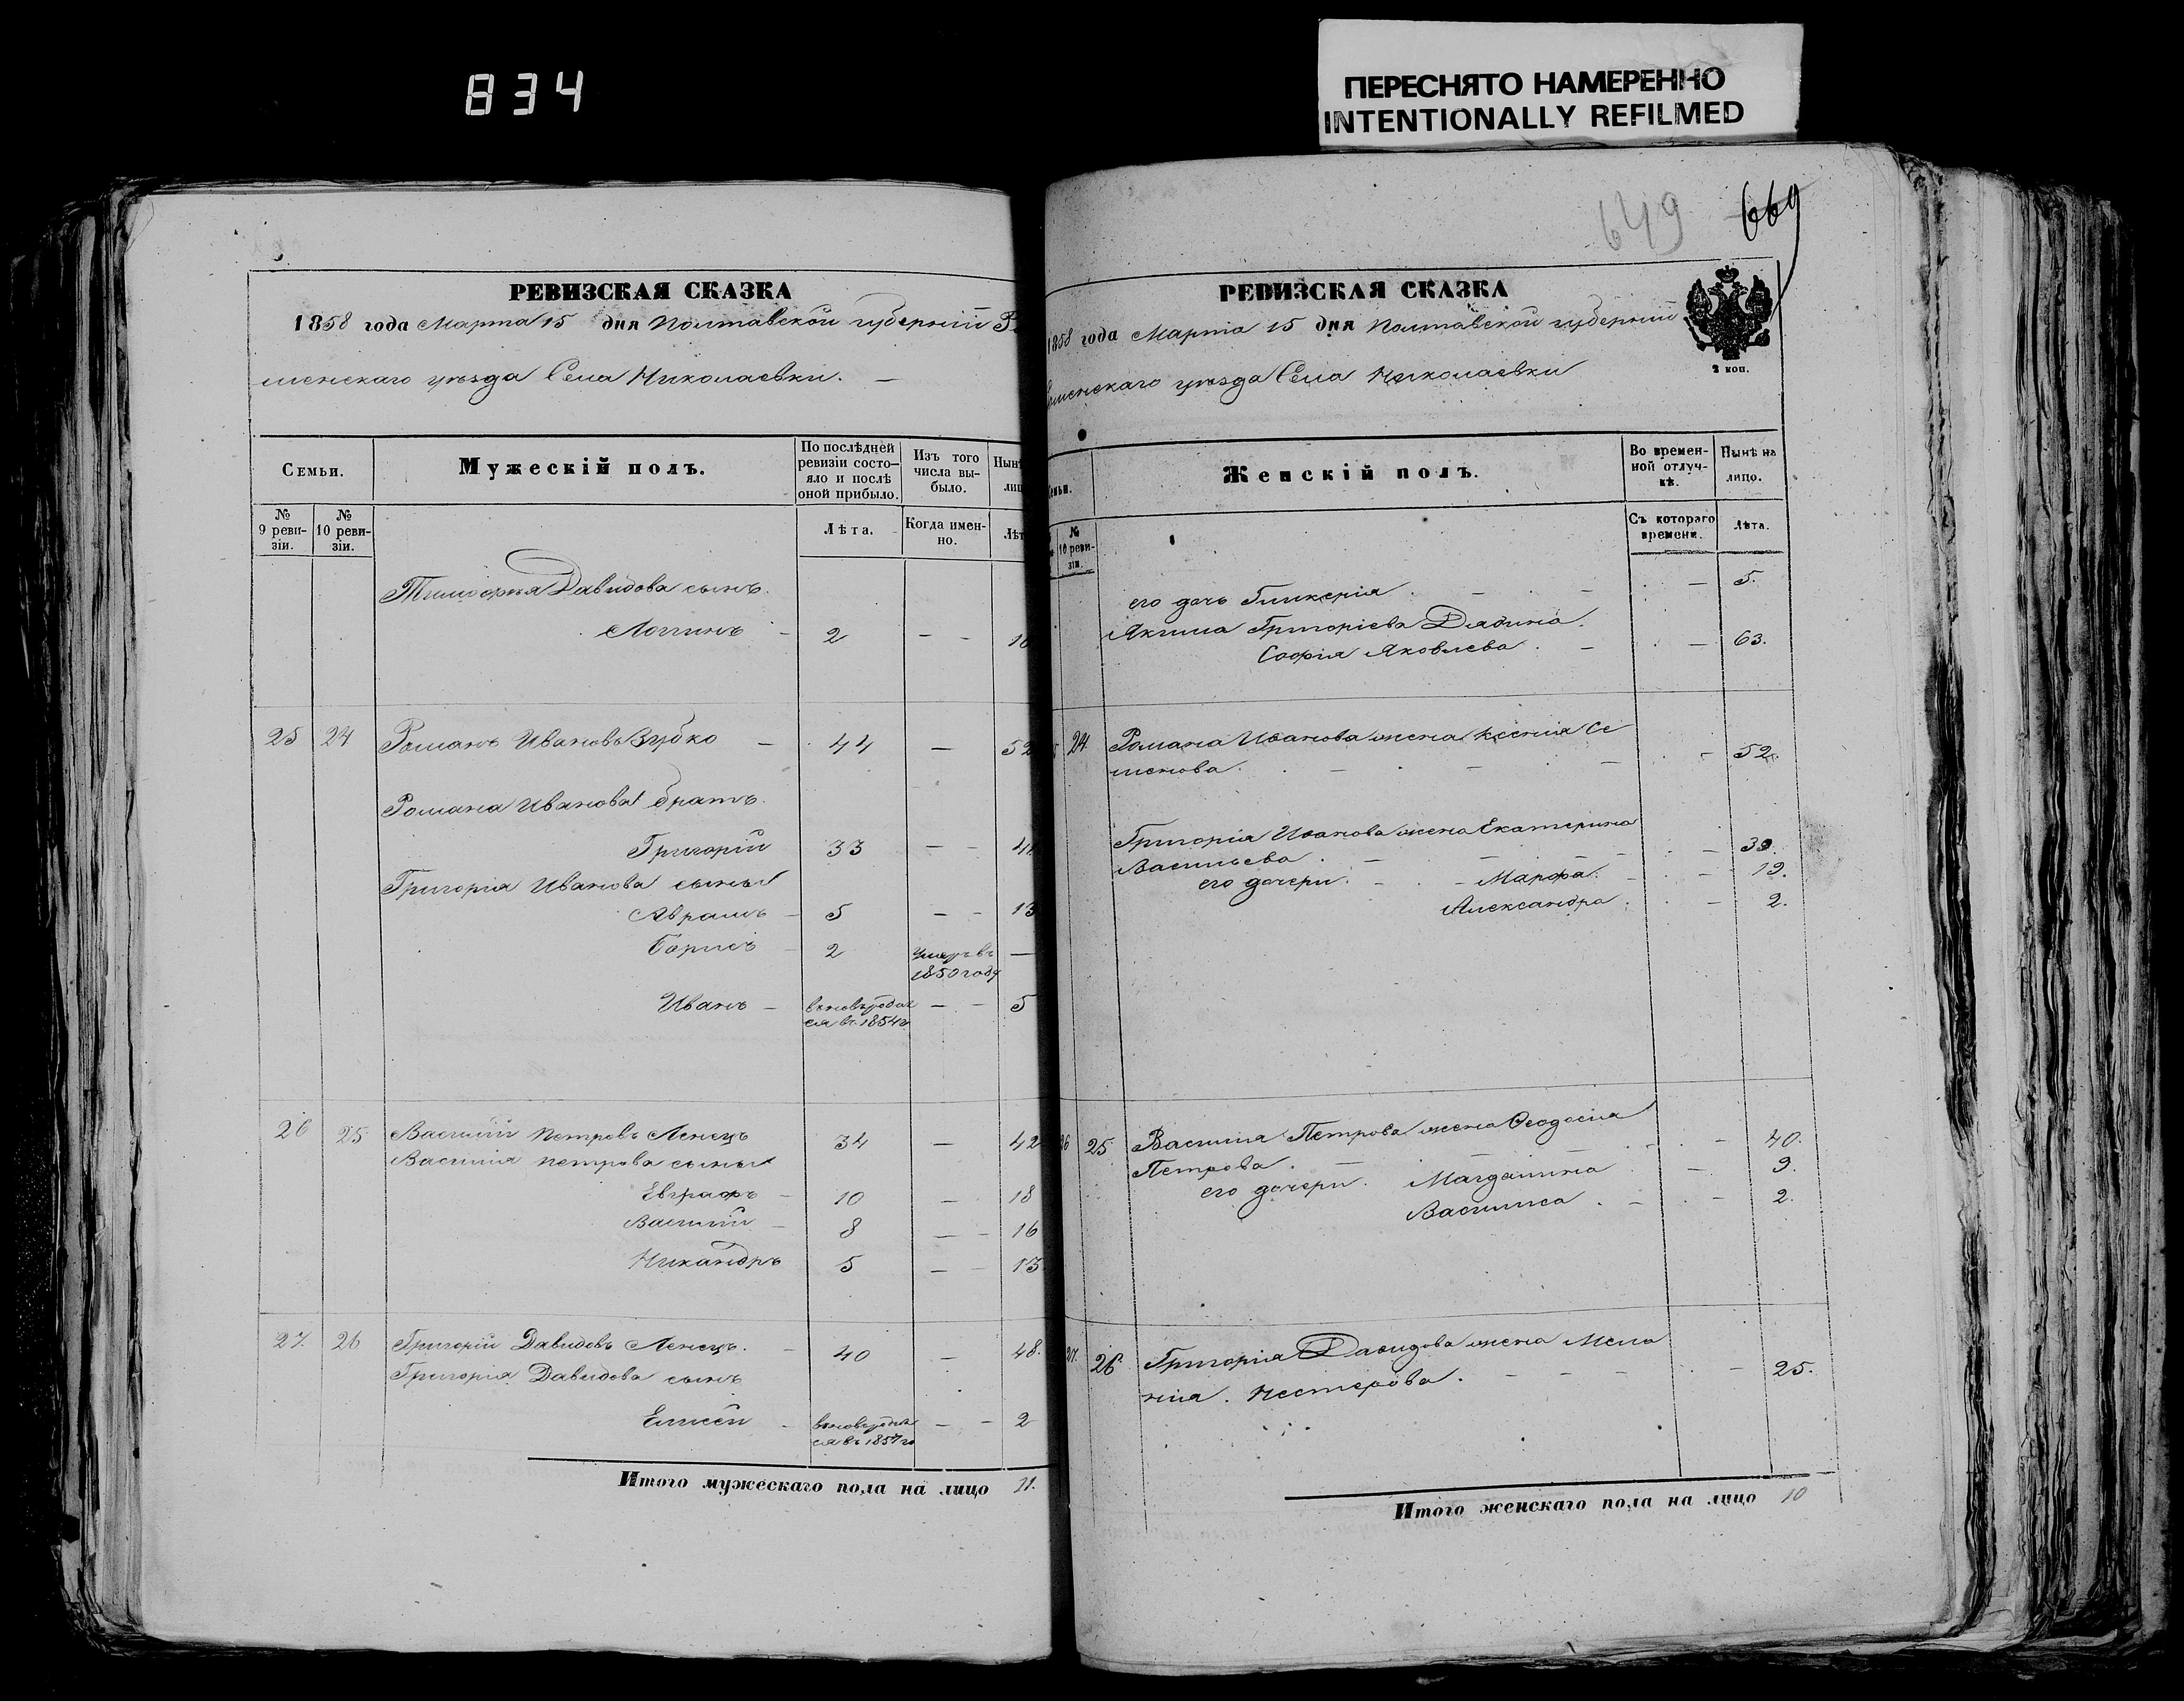 834
ПЕРЕСНЯТО НАМЕРЕННО
INTENTIONALLY REFILMED
649 669
РЕВИЗСКАЯ СКАЗКА
1858 года Марта 15 дня Полтавской губернии Р
менскаго уѣзда Села Николаевки. —
Семьи.
Мужескій полъ.
По послѣдней
ревизіи состо-
яло и послѣ
оной прибыло.
Изъ того
числа вы-
было.
Нынѣ
лиц
№
9 реви-
зіи.
№
10 реви-
зіи.
Лѣта.
Когда имен-
но.
Лѣт
Тимофея Давидова сынъ.
Логгинъ — 2 — — 10
25 24 Романъ Ивановъ Зубко — 44 — 52
Романа Иванова братъ.
Григорій 33 — — 41
Григорія Иванова сыны
Аврамъ — 5 — — 13
Борисъ — 2 умеръ въ —
1850 году
Иванъ — вновь родил — — 5
ся въ 1854 г
26 25 Василій Петровъ Ленецъ 34 — 42
Василія Петрова сыны
Евграфъ — 10 — 18
Василій — 8 — — 16
Никандръ 5 — — 13
27. 26 Григорій Давидовъ Ленецъ. — 40 — 48.
Григорія Давидова сынъ
Елисей — вновь родил — — 2
ся въ 1857 го
Итого мужескаго пола на лицо 11.
РЕВИЗСКАЯ СКАЗКА
1858 года Марта 15 дня Полтавской губерніи
оменскаго уѣзда Села Николаевки
2 коп.
емьи.
Женскій полъ.
Во времен-
ной отлуч-
кѣ.
Нынѣ на
лицо.
№
10 реви-
зіи.
Съ котораго
времени.
Лѣта.
его дочь Гликерія . — — — — 5.
Якима Григоріева Дядина.
Софія Яковлева . — — 63.
24. Романа Иванова жена Ксенія Се
менова. — — — — 52.
Григорія Иванова жена Екатерина
Васильева . — — — — 39.
его дочери. — — Марфа. — — 19.
Александра. — 2.
26 25 Василія Петрова жена Феодосія
Петрова. — — — 40.
его дочери. Магдалина — 9.
Василиса . — — 2.
27. 26. Григорія Давидова жена Мела
нія. Нестерова. — — — — 25.
Итого женскаго пола на лицо 10